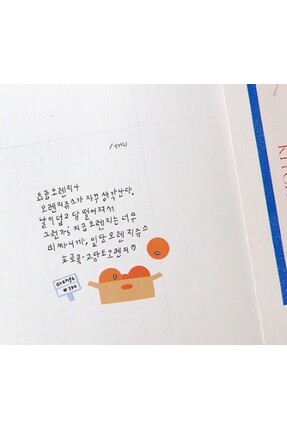 /THU
요즘 오렌지나
오렌지쥬스가 자꾸 생각난다.
날이 덥고 당 떨어져서
그런가? 지금 오렌지는 너무
비싸니까, 일단 오렌지쥬스
호로록. 고당도오렌지♡
orange
KITCH